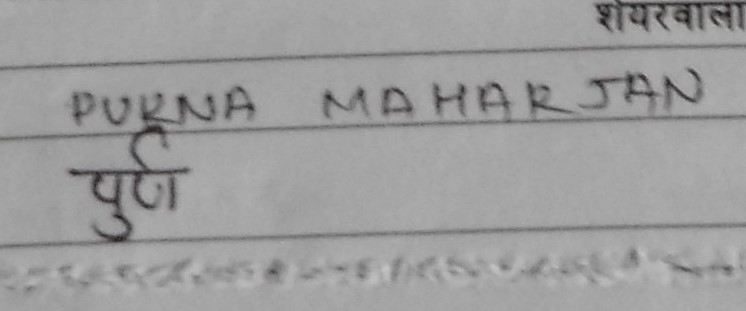 शेयरवाला
PURNA MAHARJAN
पुर्ण